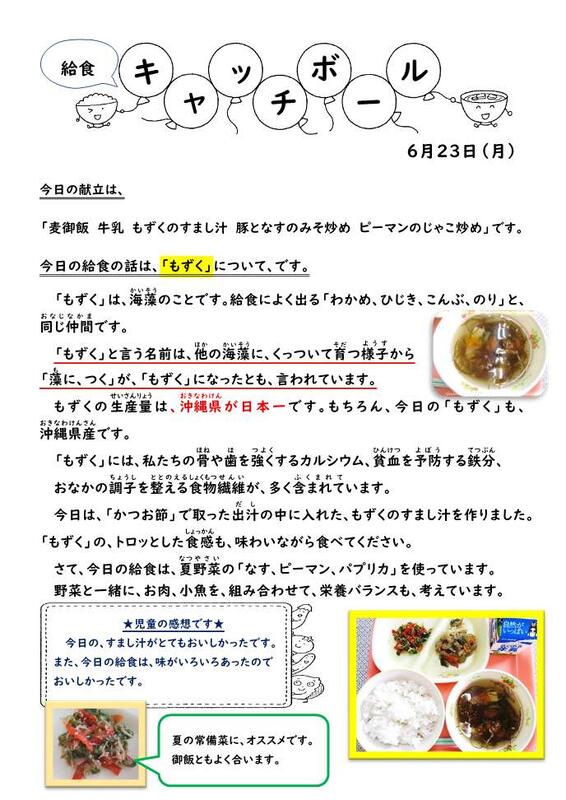 給食
キャッチボール
6月23日(月)
今日の献立は、
「麦御飯 牛乳 もずくのすまし汁 豚となすのみそ炒め ピーマンのじゃこ炒め」です。
今日の給食の話は、「もずく」について、です。
「もずく」は、海藻のことです。給食によく出る「わかめ、ひじき、こんぶ、のり」と、
同じ仲間です。
「もずく」と言う名前は、他の海藻に、くっついて育つ様子から
「藻に、つく」が、「もずく」になったとも、言われています。
もずくの生産量は、沖縄県が日本一です。もちろん、今日の「もずく」も、
沖縄県産です。
「もずく」には、私たちの骨や歯を強くするカルシウム、貧血を予防する鉄分、
おなかの調子を整える食物繊維が、多く含まれています。
今日は、「かつお節」で取った出汁の中に入れた、もずくのすまし汁を作りました。
「もずく」の、トロッとした食感も、味わいながら食べてください。
さて、今日の給食は、夏野菜の「なす、ピーマン、パプリカ」を使っています。
野菜と一緒に、お肉、小魚を、組み合わせて、栄養バランスも、考えています。
★児童の感想です★
今日の、すまし汁がとてもおいしかったです。
また、今日の給食は、味がいろいろあったので
おいしかったです。
夏の常備菜に、オススメです。
御飯ともよく合います。
自然が
いっぱい